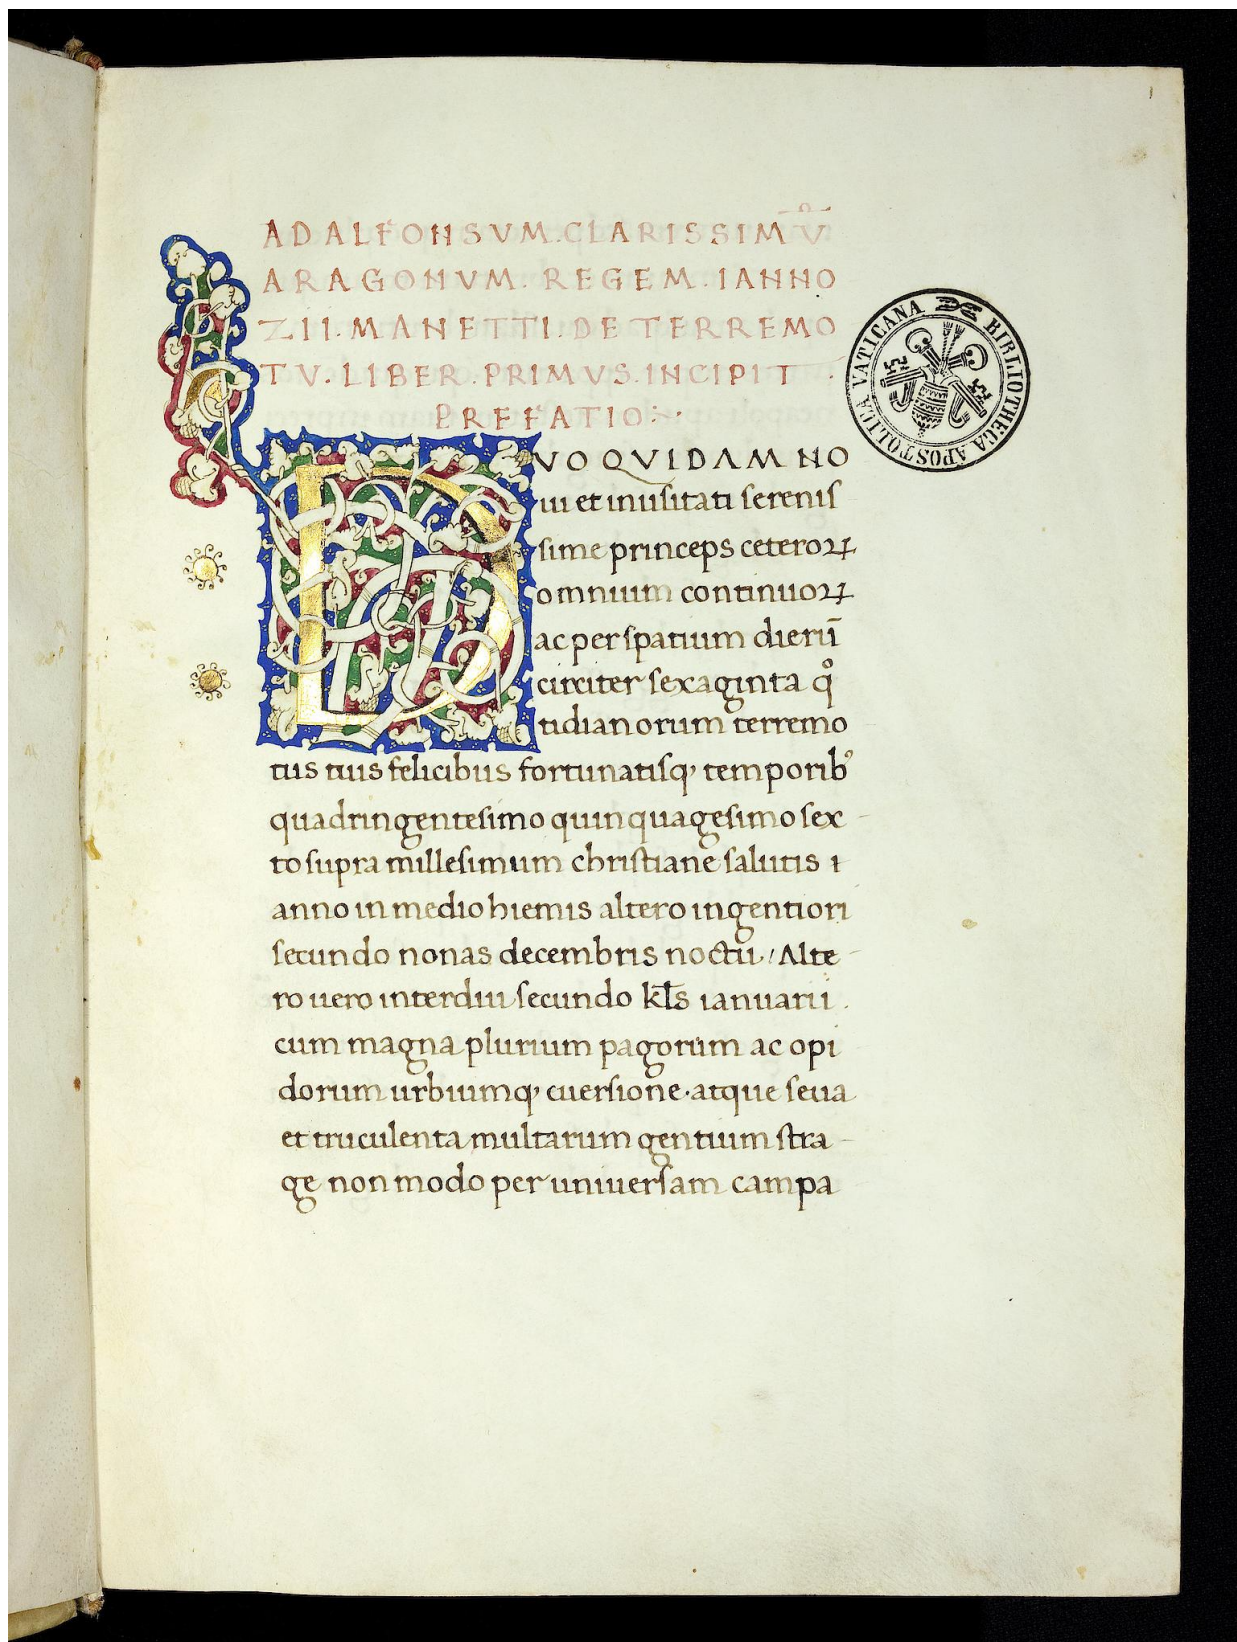 1
AD ALFONSVM. CLARISSIMV̄
ARAGONVM. REGEM. IANNO
ZII. MANETTI. DE TERREMO
TV. LIBER. PRIMVS. INCIPIT.
PREFATIO:·
DVO QVIDAM NO
ui et inusitati serenis
sime princeps ceteroꝝ
omnium continuoꝝ
ac per spatium dierū
circiter sexaginta qͦ
tidianorum terremo
tus tuis felicibus fortunatisq; temporibꝰ
quadringentesimo quinquagesimo sex
to supra millesimum christiane salutis ı
anno in medio hiemis altero ingentiori
secundo nonas decembris noctu / Alte
ro uero interdiu secundo kl̄s ianuarii.
cum magna plurium pagorum ac opi
dorum urbiumq; euersione · atque seua
et truculenta multarum gentium stra
ge non modo per uniuersam campa
BIBLIOTHECA APOSTOLICA VATICANA